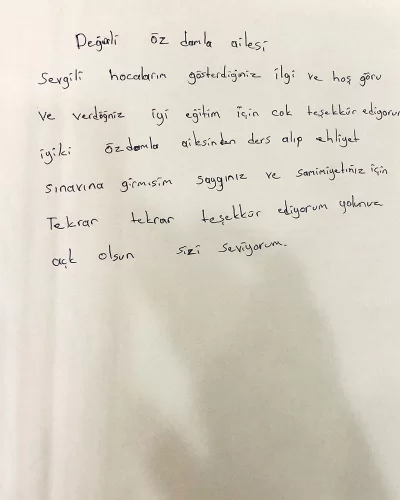 Değerli öz damla ailesi
Sevgili hocalarım gösterdiğiniz ilgi ve hoş görü
ve verdiğniz iyi eğitim için cok teşekkür ediyorum
iyiki özdamla ailesinden ders alıp ehliyet
sınavına girmişim saygınız ve samimiyetiniz için
Tekrar tekrar teşekkür ediyorum yolunuz
açık olsun sizi seviyorum.